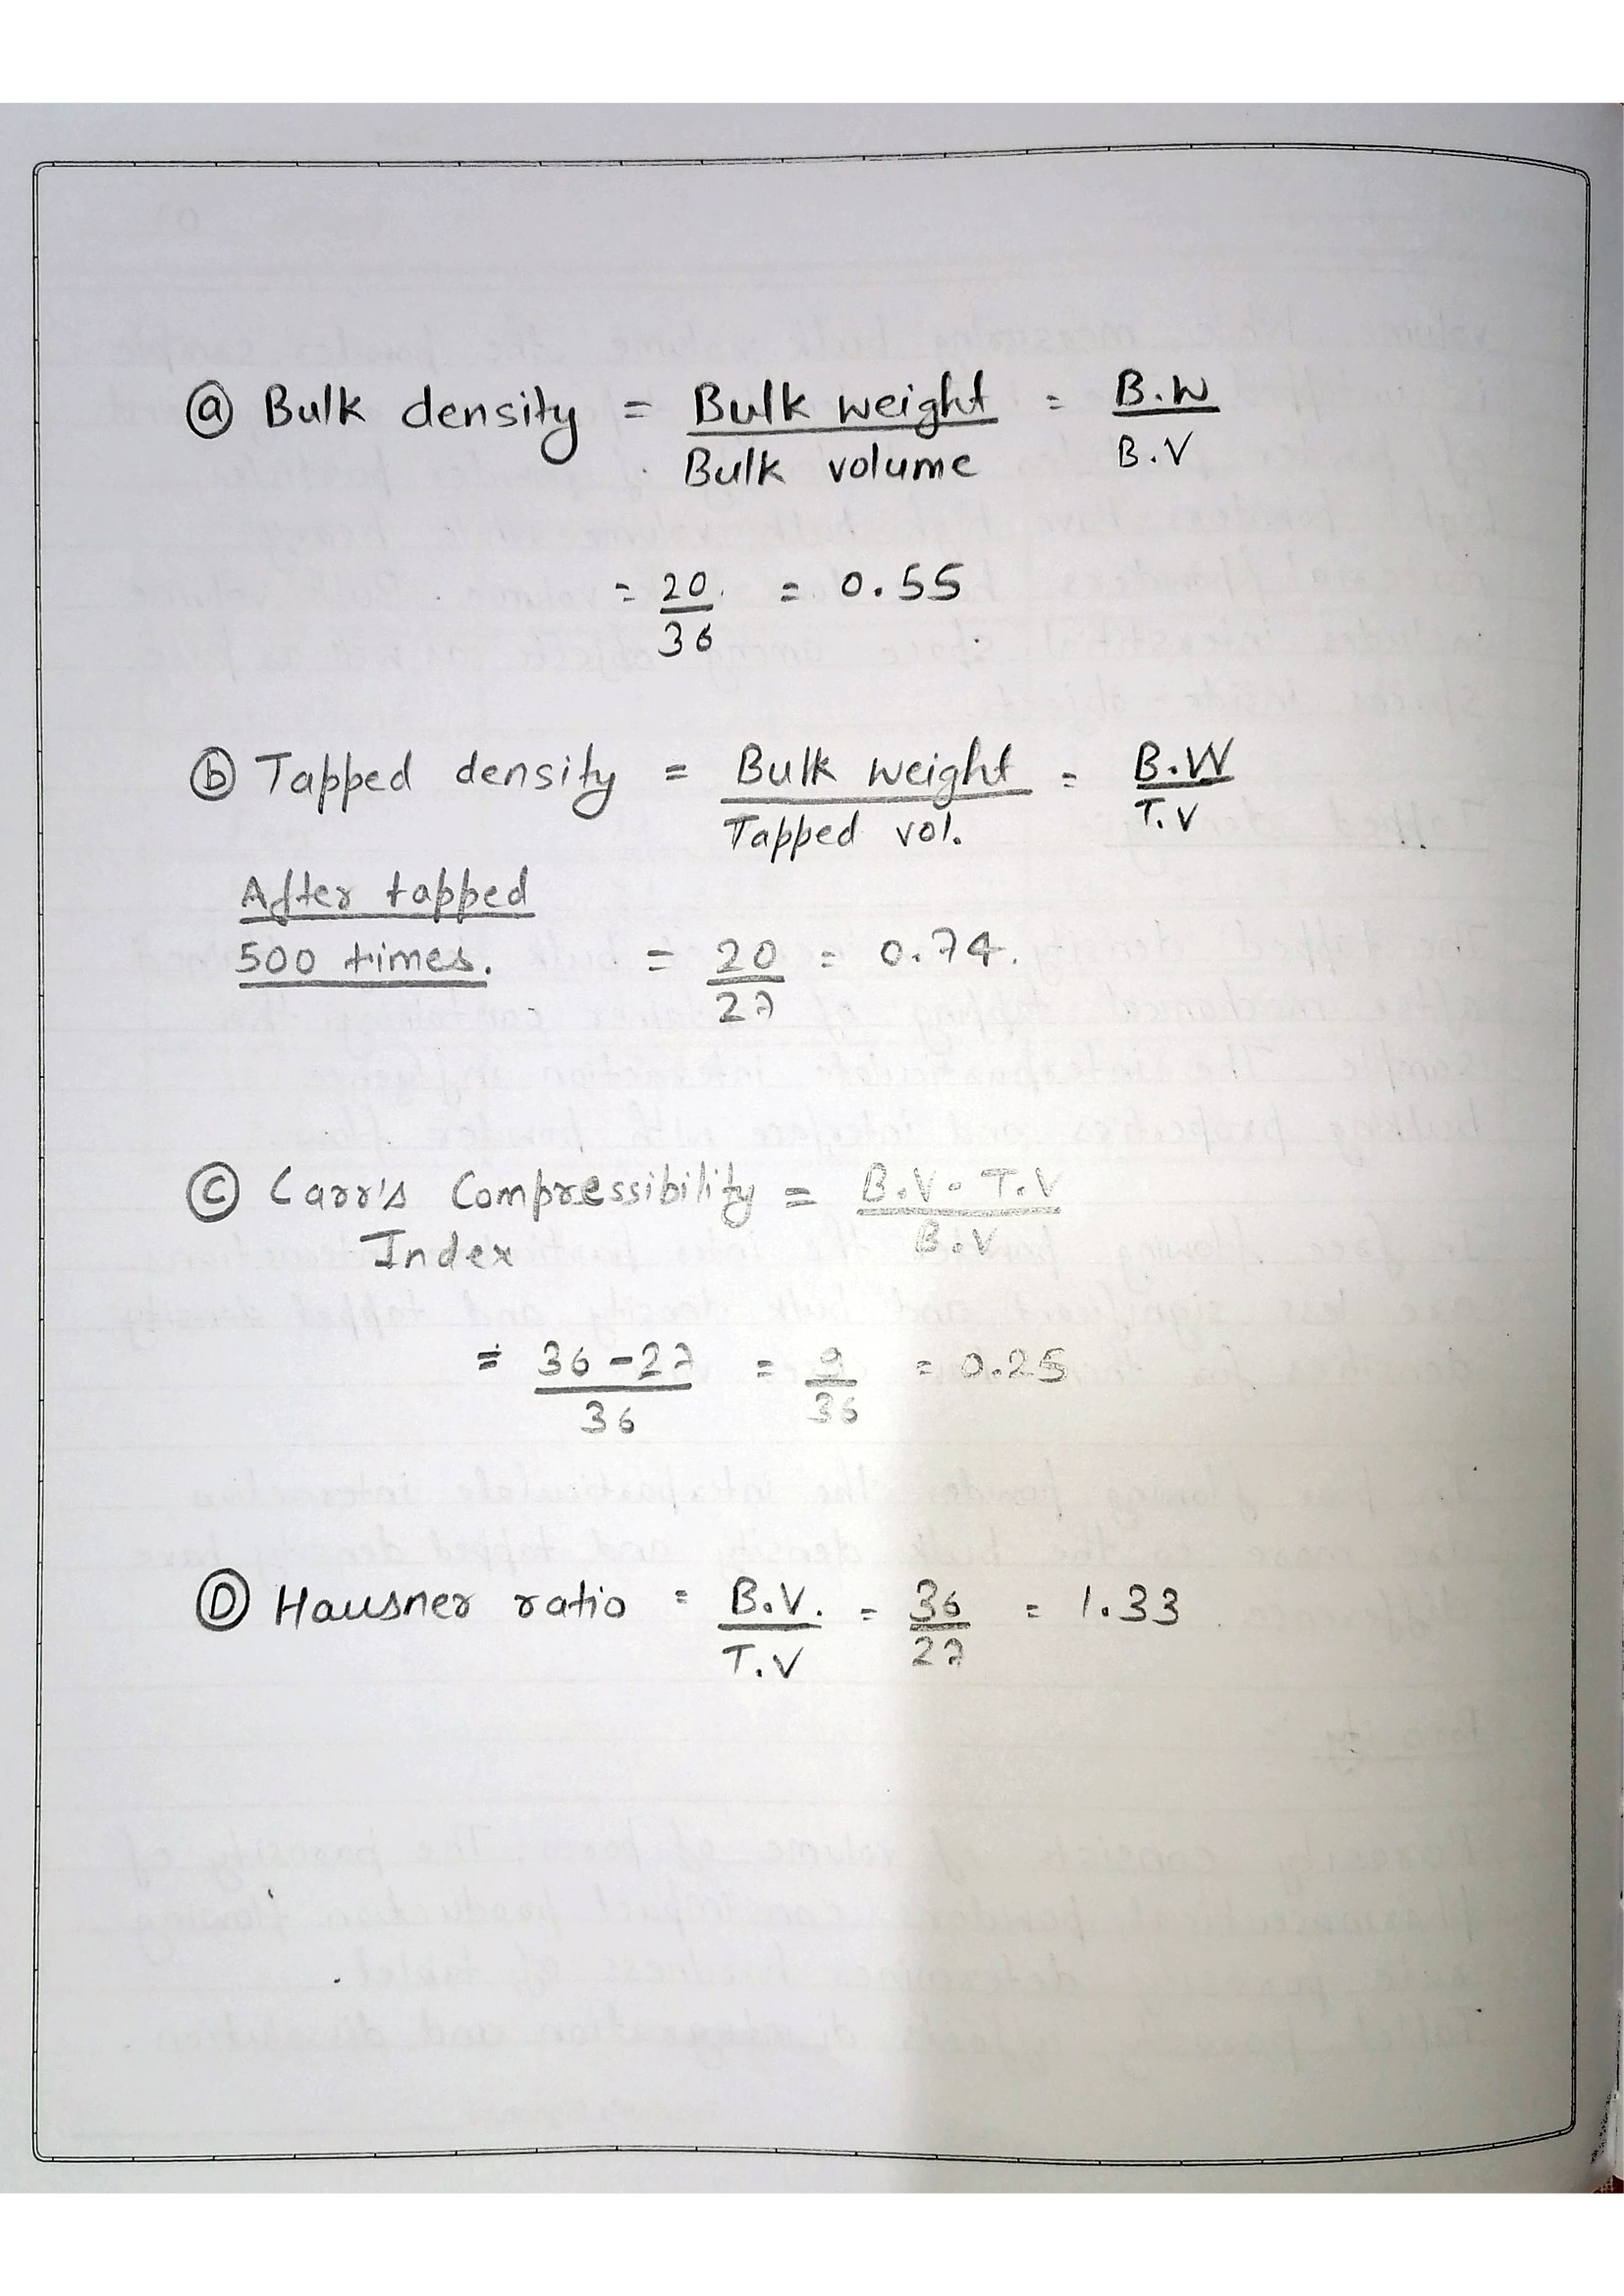 ⓐ Bulk density = Bulk weight / Bulk volume = B.W / B.V
= 20 / 36 = 0.55
ⓑ Tapped density = Bulk weight / Tapped vol. = B.W / T.V
After tapped
500 times. = 20 / 27 = 0.74.
Ⓒ Carr's Compressibility = B.V - T.V / B.V
Index
= 36 - 27 / 36 = 9 / 36 = 0.25
Ⓓ Hausner ratio = B.V. / T.V = 36 / 27 = 1.33